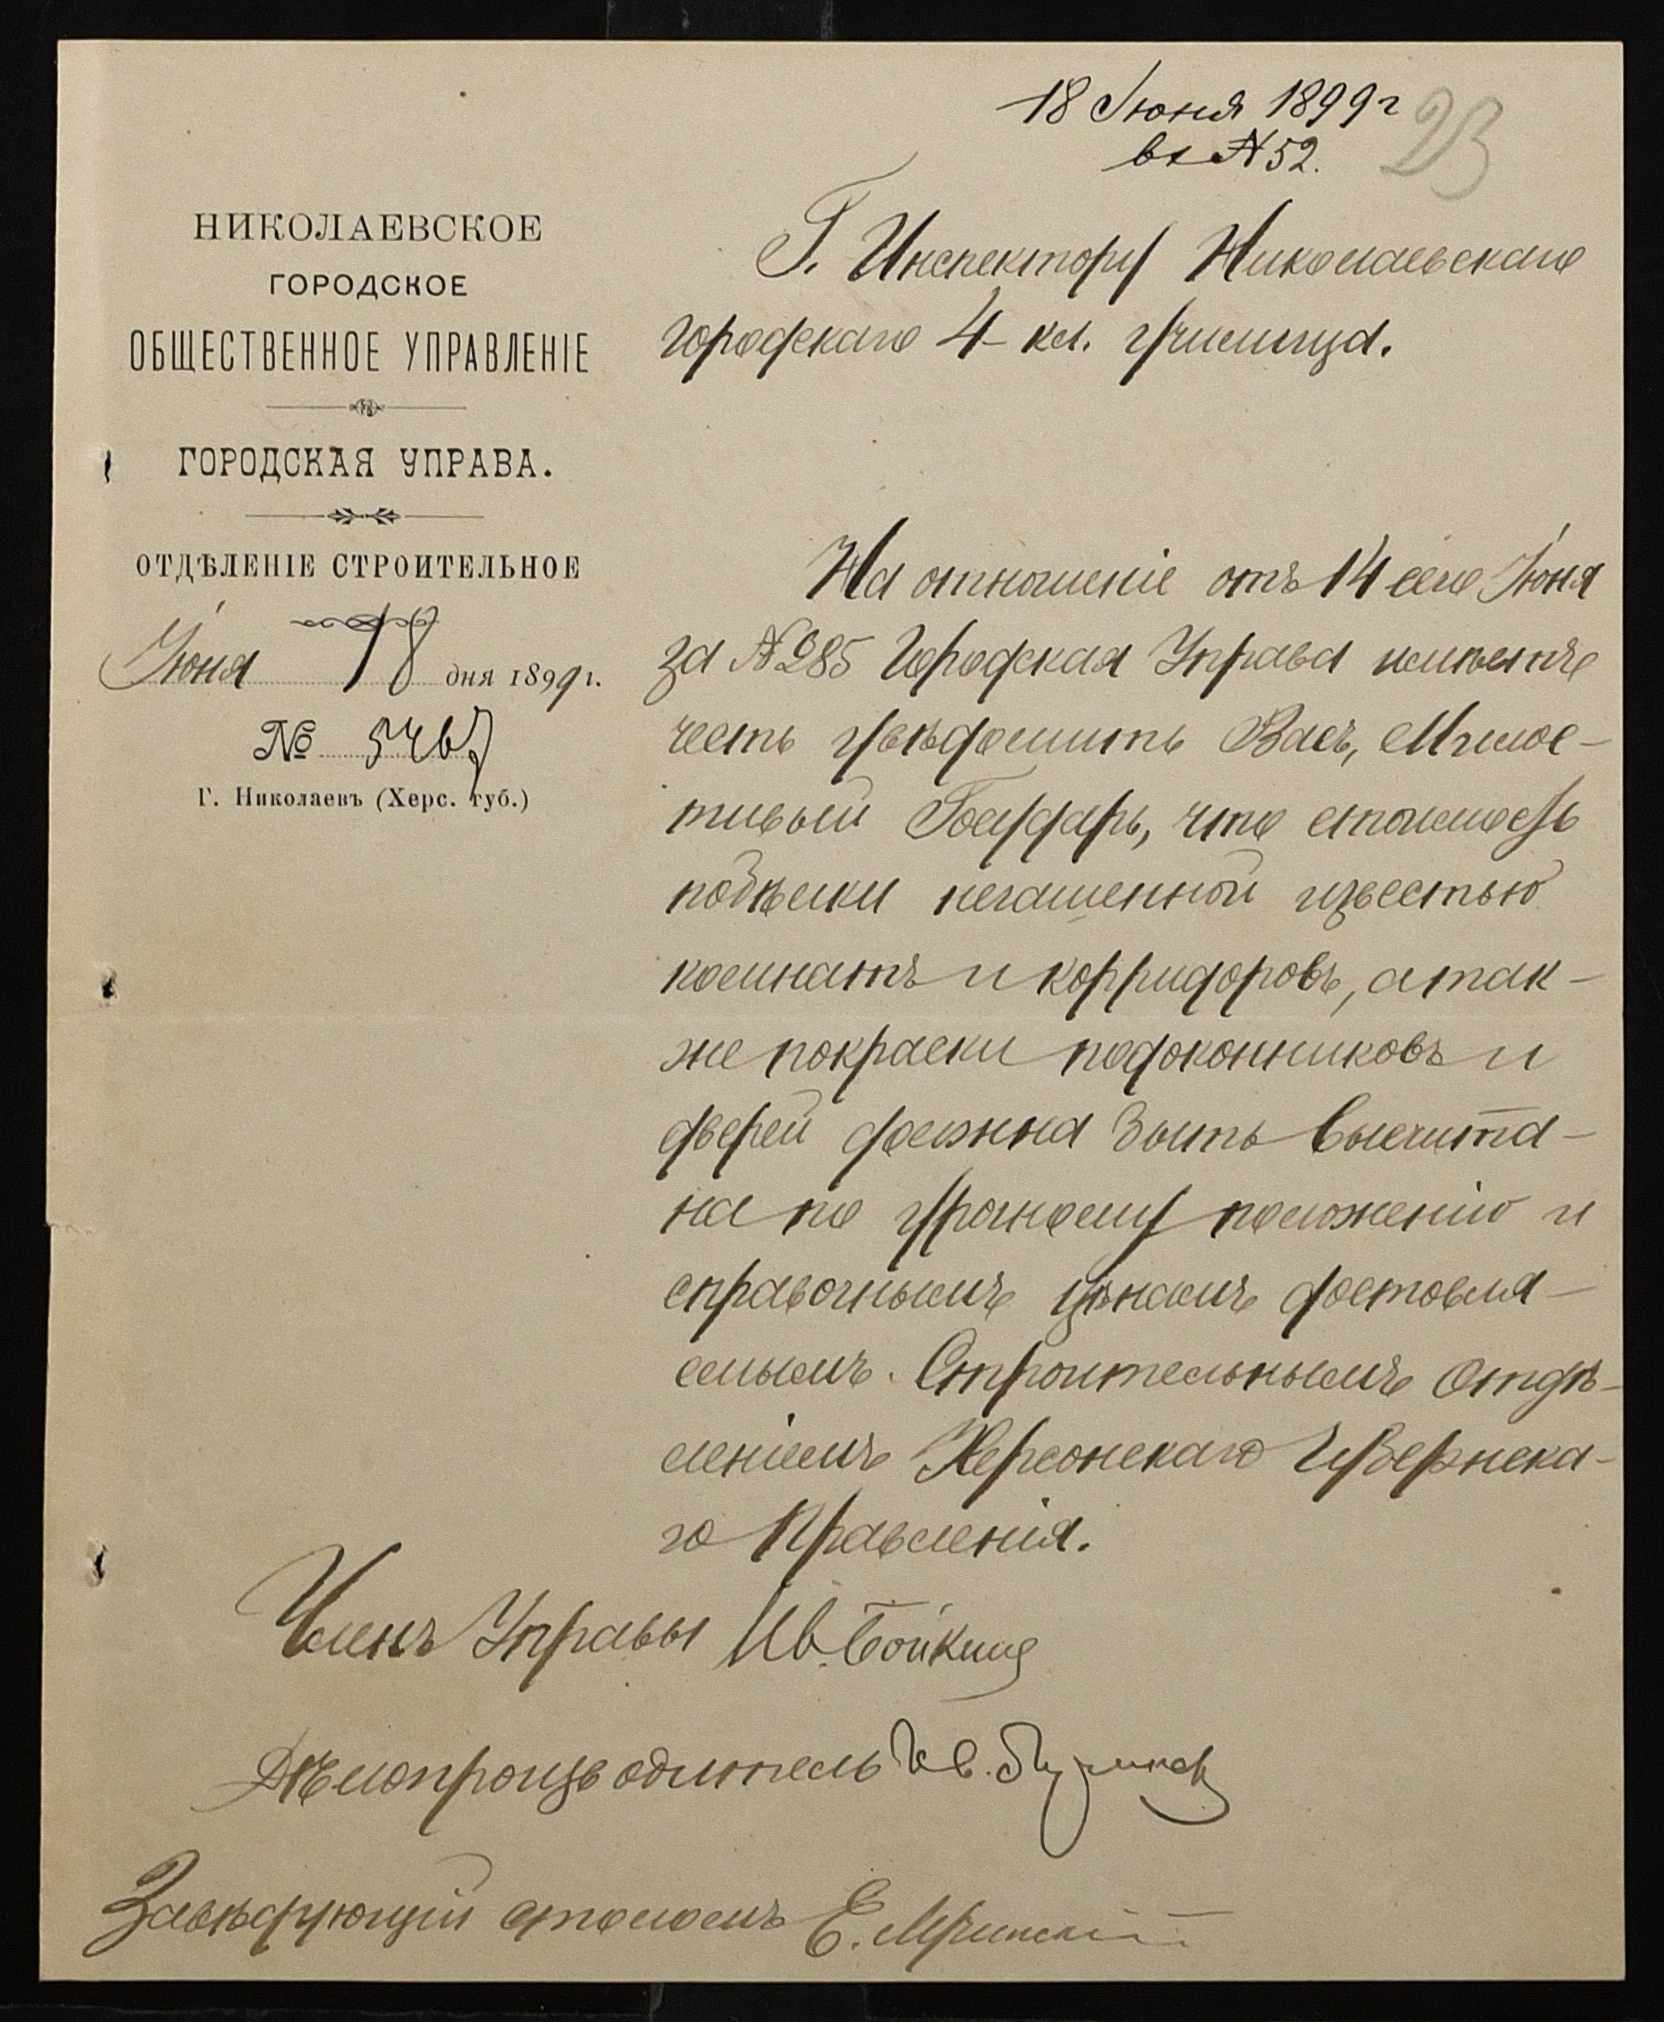 18 Июня 1899 г
вх № 52.
23
НИКОЛАЕВСКОЕ
ГОРОДСКОЕ
ОБЩЕСТВЕННОЕ УПРАВЛЕНІЕ
ГОРОДСКАЯ УПРАВА.
ОТДѢЛЕНІЕ СТРОИТЕЛЬНОЕ
Іюня 18 дня 1899 г.
№ 5467
Г. Николаевъ (Херс. губ.)
Г. Инспектору Николаевскаго
городскаго 4-кл. училища.
На отношеніе отъ 14 сего Іюня
за № 285 Городская Управа имѣетъ
честь увѣдомить Васъ, Милос-
тивый Государь, что стоимость
побѣлки негашенной известью
комнатъ и корридоровъ, а так-
же покраски подоконниковъ и
дверей должна быть высчита-
на по урочному положенію и
справочнымъ цѣнамъ доставля-
емымъ Строительнымъ Отдѣ-
леніемъ Херсонскаго Губернска-
го Правленія.
Членъ Управы Ив. Бойкин
Дѣлопроизводитель Ив.
Завѣдующій столомъ Е.